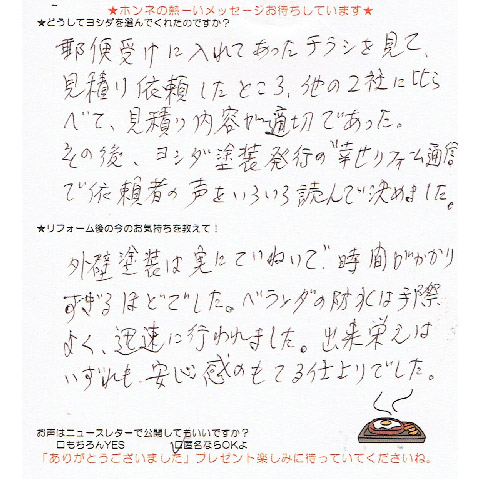 ★ホンネの熱ーいメッセージお待ちしています★
★どうしてヨシダを選んでくれたのですか？
郵便受けに入れてあったチラシを見て、
見積り依頼したところ、他の2社に比ら
べて、見積り内容が適切であった。
その後、ヨシダ塗装発行の"幸せリフォーム通信
で依頼者の声をいろいろ読んで決めました。
★リフォーム後の今のお気持ちを教えて！
外壁塗装は実にていねいで、時間がかかり
すぎるほどでした。ベランダの防水は手際
よく、迅速に行われました。出来栄えは
いずれも、安心感のもてる仕上りでした。
お声はニュースレターで公開してもいいですか？
□もちろんYES □匿名ならOKよ
「ありがとうございました」プレゼント楽しみに待っていてくださいね。